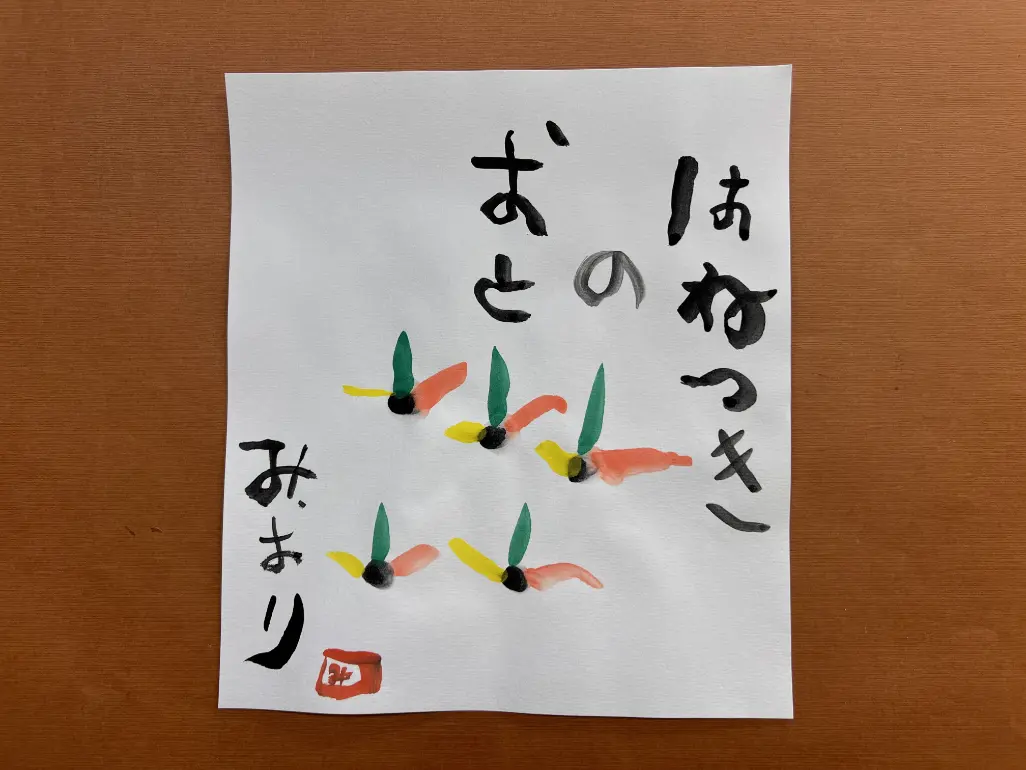 はねつき
の
おと
みおり
み